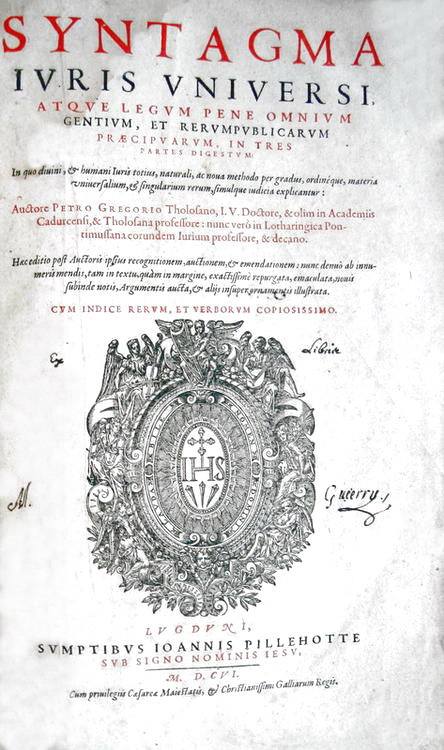 SYNTAGMA
IVRIS VNIVERSI,
ATQVE LEGVM PENE OMNIVM
GENTIVM, ET RERVMPVBLICARVM
PRÆCIPVARVM, IN TRES
PARTES DIGESTVM:
In quo diuini, & humani Iuris totius, naturali, ac noua methodo per gradus, ordinéque, materia
vniuersalium, & singularium rerum, simulque iudicia explicantur:
Auctore PETRO GREGORIO Tholosano, I. V. Doctore, & olim in Academiis
Cadurcensi, & Tholosana professore: nunc verò in Lotharingica Pon-
timussana eorundem Iurium professore, & decano.
Hæc editio post Auctoris ipsius recognitionem, auctionem, & emendationem: nunc denuò ab innu-
meris mendis, tam in textu, quàm in margine, exactissimè repurgata, emaculata, nouis
subinde notis, Argumentis aucta, & alijs insuper ornamentis illustrata.
CVM INDICE RERVM, ET VERBORVM COPIOSISSIMO.
Ex Libris
IHS
Al. Guerry.
LVGDVNI,
SVMPTIBVS IOANNIS PILLEHOTTE
SVB SIGNO NOMINIS IESV,
M. DCVI.
Cum priuilegiis Cæsareæ Maiestatis, & Christianissimi Galliarum Regis.